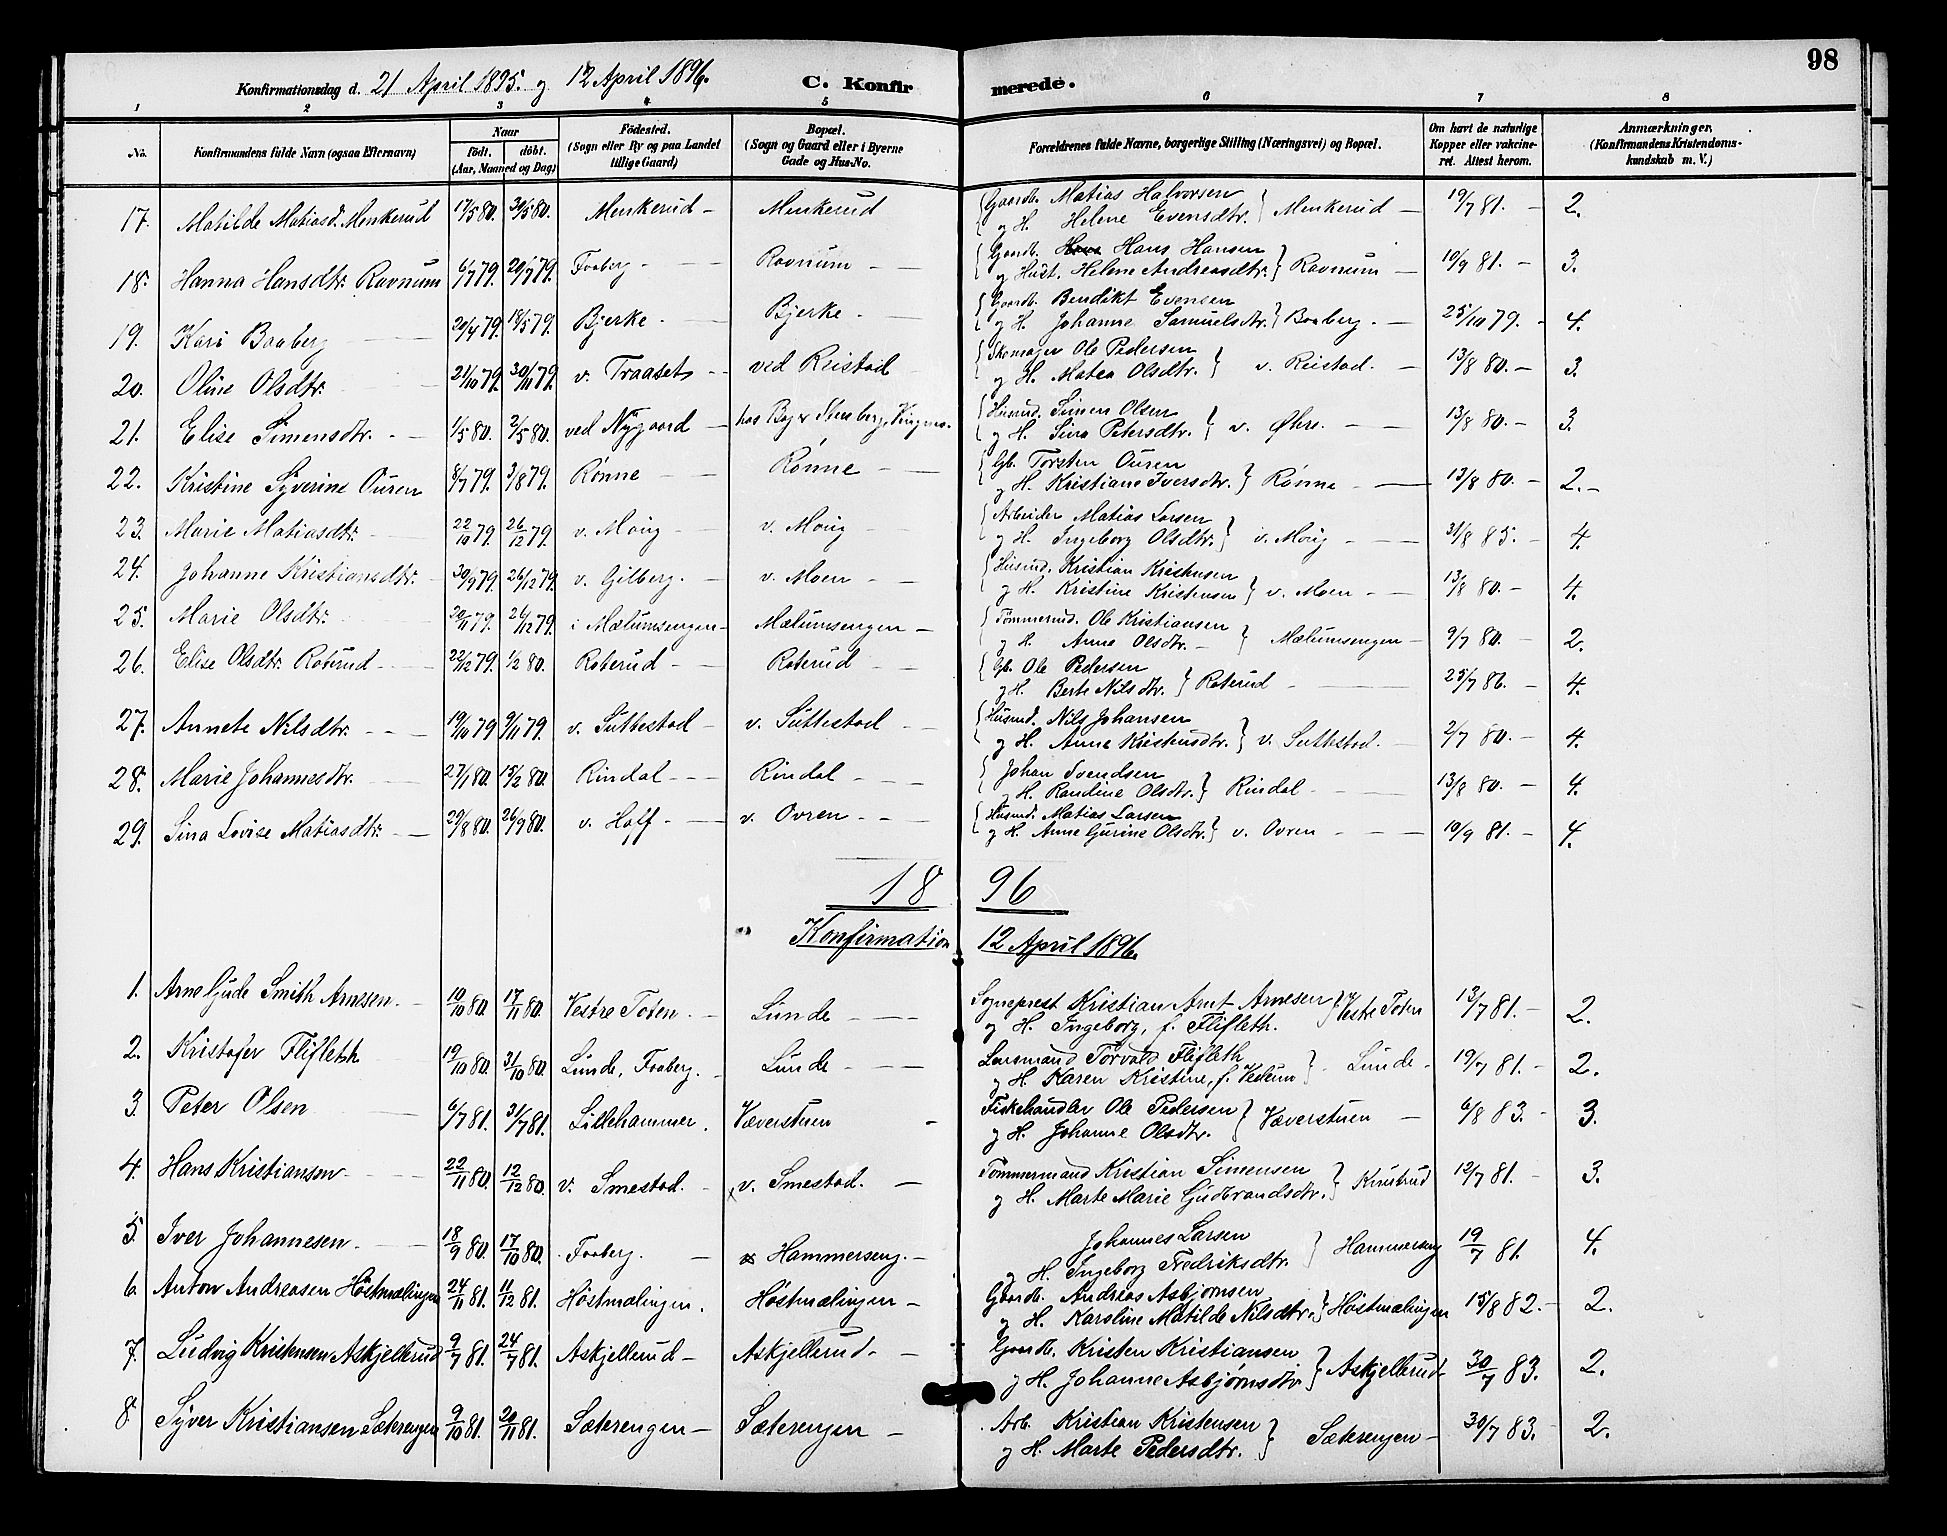 98
Konfirmationsdag d. 21 April 1895. og 12 April 1896. C. Konfirmerede.
1 2 3 4 5 6 7 8
No. Konfirmandens fulde Navn (ogsaa Efternavn) Naar födt. döbt. (Aar, Maaned og Dag) Födested. (Sogn eller By og paa Landet tillige Gaard) Bopæl. (Sogn og Gaard eller i Byerne Gade og Hus-No. Forældrenes fulde Navne, borgerlige Stilling (Næringsvei) og Bopæl. Om havt de naturlige Kopper eller vakcineret. Attest herom. Anmærkninger. (Konfirmandens Kristendomskundskab m. V.)
17. Matilde Matiasd. Menkerud 17/5 80. 30/5 80. Menkerud – Menkerud Gaardb. Matias Halvorsen og H. Helene Evensdtr. } Menkerud – 19/7 81. – 2.
18. Hanna Hansdtr. Rovnum 6/7 79. 20/7 79. Faaberg – Rovnum – Gaardb. Hans Hansen og Hust. Helene Andreasdtr. } Rovnum – 10/9 81. – 3.
19. Kari Baaberg 20/4 79. 18/5 79. Bjerke – Bjerke – Gaardb. Bendikt Evensen og H. Johanne Samuelsdtr. } Baaberg. – 25/10 79. – 4.
20. Oline Olsdtr. 21/10 79. 30/11 79. v. Traaset – ved Reistad Skomager Ole Pedersen og H. Matea Olsdtr. } v. Reistad. – 13/8 80. – 3.
21. Elise Simensdtr. – 1/5 80. 2/5 80. ved Nygaard – hos Bager Stensberg, Vingnes. Husmd. Simen Olsen og H. Sina Petersdtr. } v. Øhre. – 13/8 80. – 3.
22. Kristine Syverine Ouren 8/7 79. 3/8 79. Rønne – Rønne – Gb. Torsten Ouren og H. Kristiane Iversdtr. } Rønne – 13/8 80. – 2. –
23. Marie Matiasdtr. 22/10 79. 26/12 79. v. Moug – v. Moug – Arbeider Matias Larsen og H. Ingeborg Olsdtr. } v. Moug – 31/8 85. – 4.
24. Johanne Kristiansdtr. 30/9 79. 26/12 79. v. Gilberg. – v. Moen – Husmd. Kristian Kristensen og H. Kristine Kristensen } v. Moen – 13/8 80. – 4.
25. Marie Olsdtr. 20/11 79. 26/12 79. i Mælumsengen – Mælumsengen – Tømmermd. Ole Kristiansen og H. Anne Olsdtr. – } Mælumsengen – 9/7 80. – 2.
26. Elise Olsdtr. Roterud – 22/12 79. 1/2 80. Roterud – Roterud – Gb. Ole Pedersen og H. Berte Nilsdtr. } Roterud – 25/7 86. – 4.
27. Annete Nilsdtr. – 19/10 79. 9/11 79. v. Suttestad – v. Suttestad – Husmd. Nils Johansen og H. Anne Kristensdtr. } v. Suttestad. – 2/7 80. – 4.
28. Marie Johannesdtr. 27/1 80. 15/2 80. Rindal – Rindal – Johan Svendsen og H. Randine Olsdtr. } Rindal – 13/8 80. – 4.
29. Sina Lovise Matiasdtr. – 29/8 80. 26/9 80. v. Holf – v. Ovren – Husmd. Matias Larsen og H. Anne Gurine Olsdtr. } v. Ovren – 10/9 81. – 4.
1896
Konfirmation 12 April 1896.
1. Arne Gude Smith Arnesen. – 10/10 80. 17/11 80. Vestre Toten. – Lunde – Sogneprest Kristian Arnt Arnesen og H. Ingeborg, f. Flifleth. } Vestre Toten 13/7 81. – 2.
2. Kristofer Flifleth 19/10 80. 31/10 80. Lunde, Faaberg. – Lunde – Lensmand Torvald Flifleth og H. Karen Kristine, f. Vedum } Lunde – 19/7 81. – 2.
3. Peter Olsen 6/7 81. 31/7 81. Lillehammer. Væverstuen – Fiskehandler Ole Pedersen og H. Johanne Olsdtr. } Væverstuen – 6/8 83. – 3.
4. Hans Kristiansen – 22/11 80. 12/12 80. v. Smestad. – v. Smestad. – Tømmermand Kristian Simensen og H. Marte Marie Gudbrandsdtr. } Knutrud 12/7 81. – 3.
5. Iver Johannesen. – 18/9 80. 17/10 80. Faaberg. – Hammerseng. – Johannes Larsen og H. Ingeborg Fredriksdtr. } Hammerseng 19/7 81. 4.
6. Anton Andreasen Høstmælingen 24/11 81. 11/12 81. Høstmælingen. Høstmælingen – Gaardb. Andreas Asbjørnsen og H. Karoline Matilde Nilsdtr. } Høstmælingen 15/8 82. – 2.
7. Ludvig Kristensen Askjellerud 9/7 81. 24/7 81. Askjellerud – Askjellerud. – Gaardb. Kristen Kristiansen og H. Johanne Asbjørnsdtr. } Askjellerud. 30/7 83. – 2.
8. Syver Kristiansen Sæterengen 9/10 81. 20/11 81. Sæterengen – Sæterengen – Arb. Kristian Kristensen og H. Marte Pedersdtr. } Sæterengen – 30/7 83. – 2.